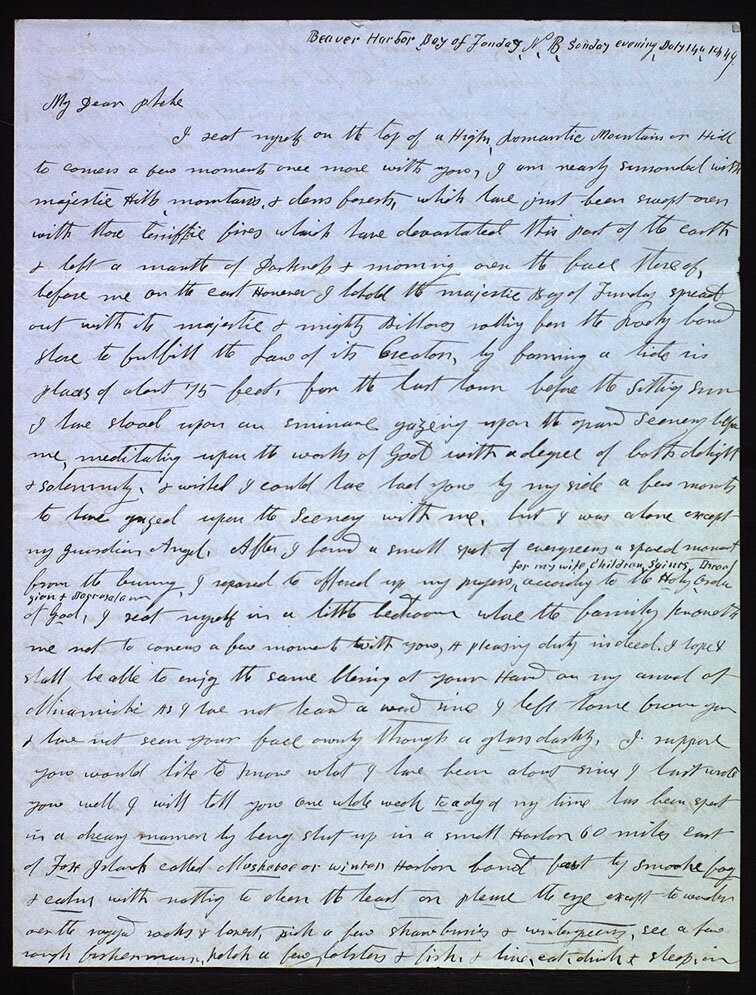 Beaver Harbor Bay of Funday N B Sunday evening July 14th 1849
My Dear Phebe
I seat myself on the top of a High, Romantic Mountain or Hill
to convers a few moments once more with you, I am nearly surrounded with
majestic Hills mountains, & dens forests, which have just been swept over
with those terriffic fires which have devastated this part of the earth
& left a mantle of Darkness & mourning over the face thereof,
before me on the east However I behold the majestic Bay of Funday spread
out with its majestic & mighty Billows rolling for the Rocky bound
shore to fulfill the Law of its Creator, by forming a tide in
places of about 75 feet, for the last hour before the Sitting sun
I have stood upon an eminance gazeing upon the grand Scenery before
me, meditating upon the works of God with a degree of both delight
& solemnity, & wished I could have had you by my side a few moments
to have gazed upon the Scenery with me, but I was alone except
my guardian Angel. After I found a small spot of evergreens a spared
for my wife, Children, Saints,
from the burning, I repared to offered up my prayers, according to the Holy order
Zion & Jerusalem
of God, I seat myself in a little bedroom whare the family knoweth
me not to convers a few moments with you, A pleasing duty indeed. I hope I
shall be able to enjoy the same blessing at your Hand on my arrival at
Miramichi As I have not heard a word since I left home from you
& have not seen your face ownly through a glass darkly. I suppose
you would like to know what I have been about since I last wrote
you well I will tell you one whole week to a dyd of my time has been spent
in a dreary manner by being shut up in a small Harbor 60 miles East
of Fox Islands called Musketoe or winter Harbor bound fast by smooke fog
& calm with nothing to chear the heart or please the eye except to wander
over the ruged rocks & forest, pick a few strawburies & wintergreens, see a few
rough fisherman, ketch a few lobsters & fish, & live, eat, drink & sleep, in